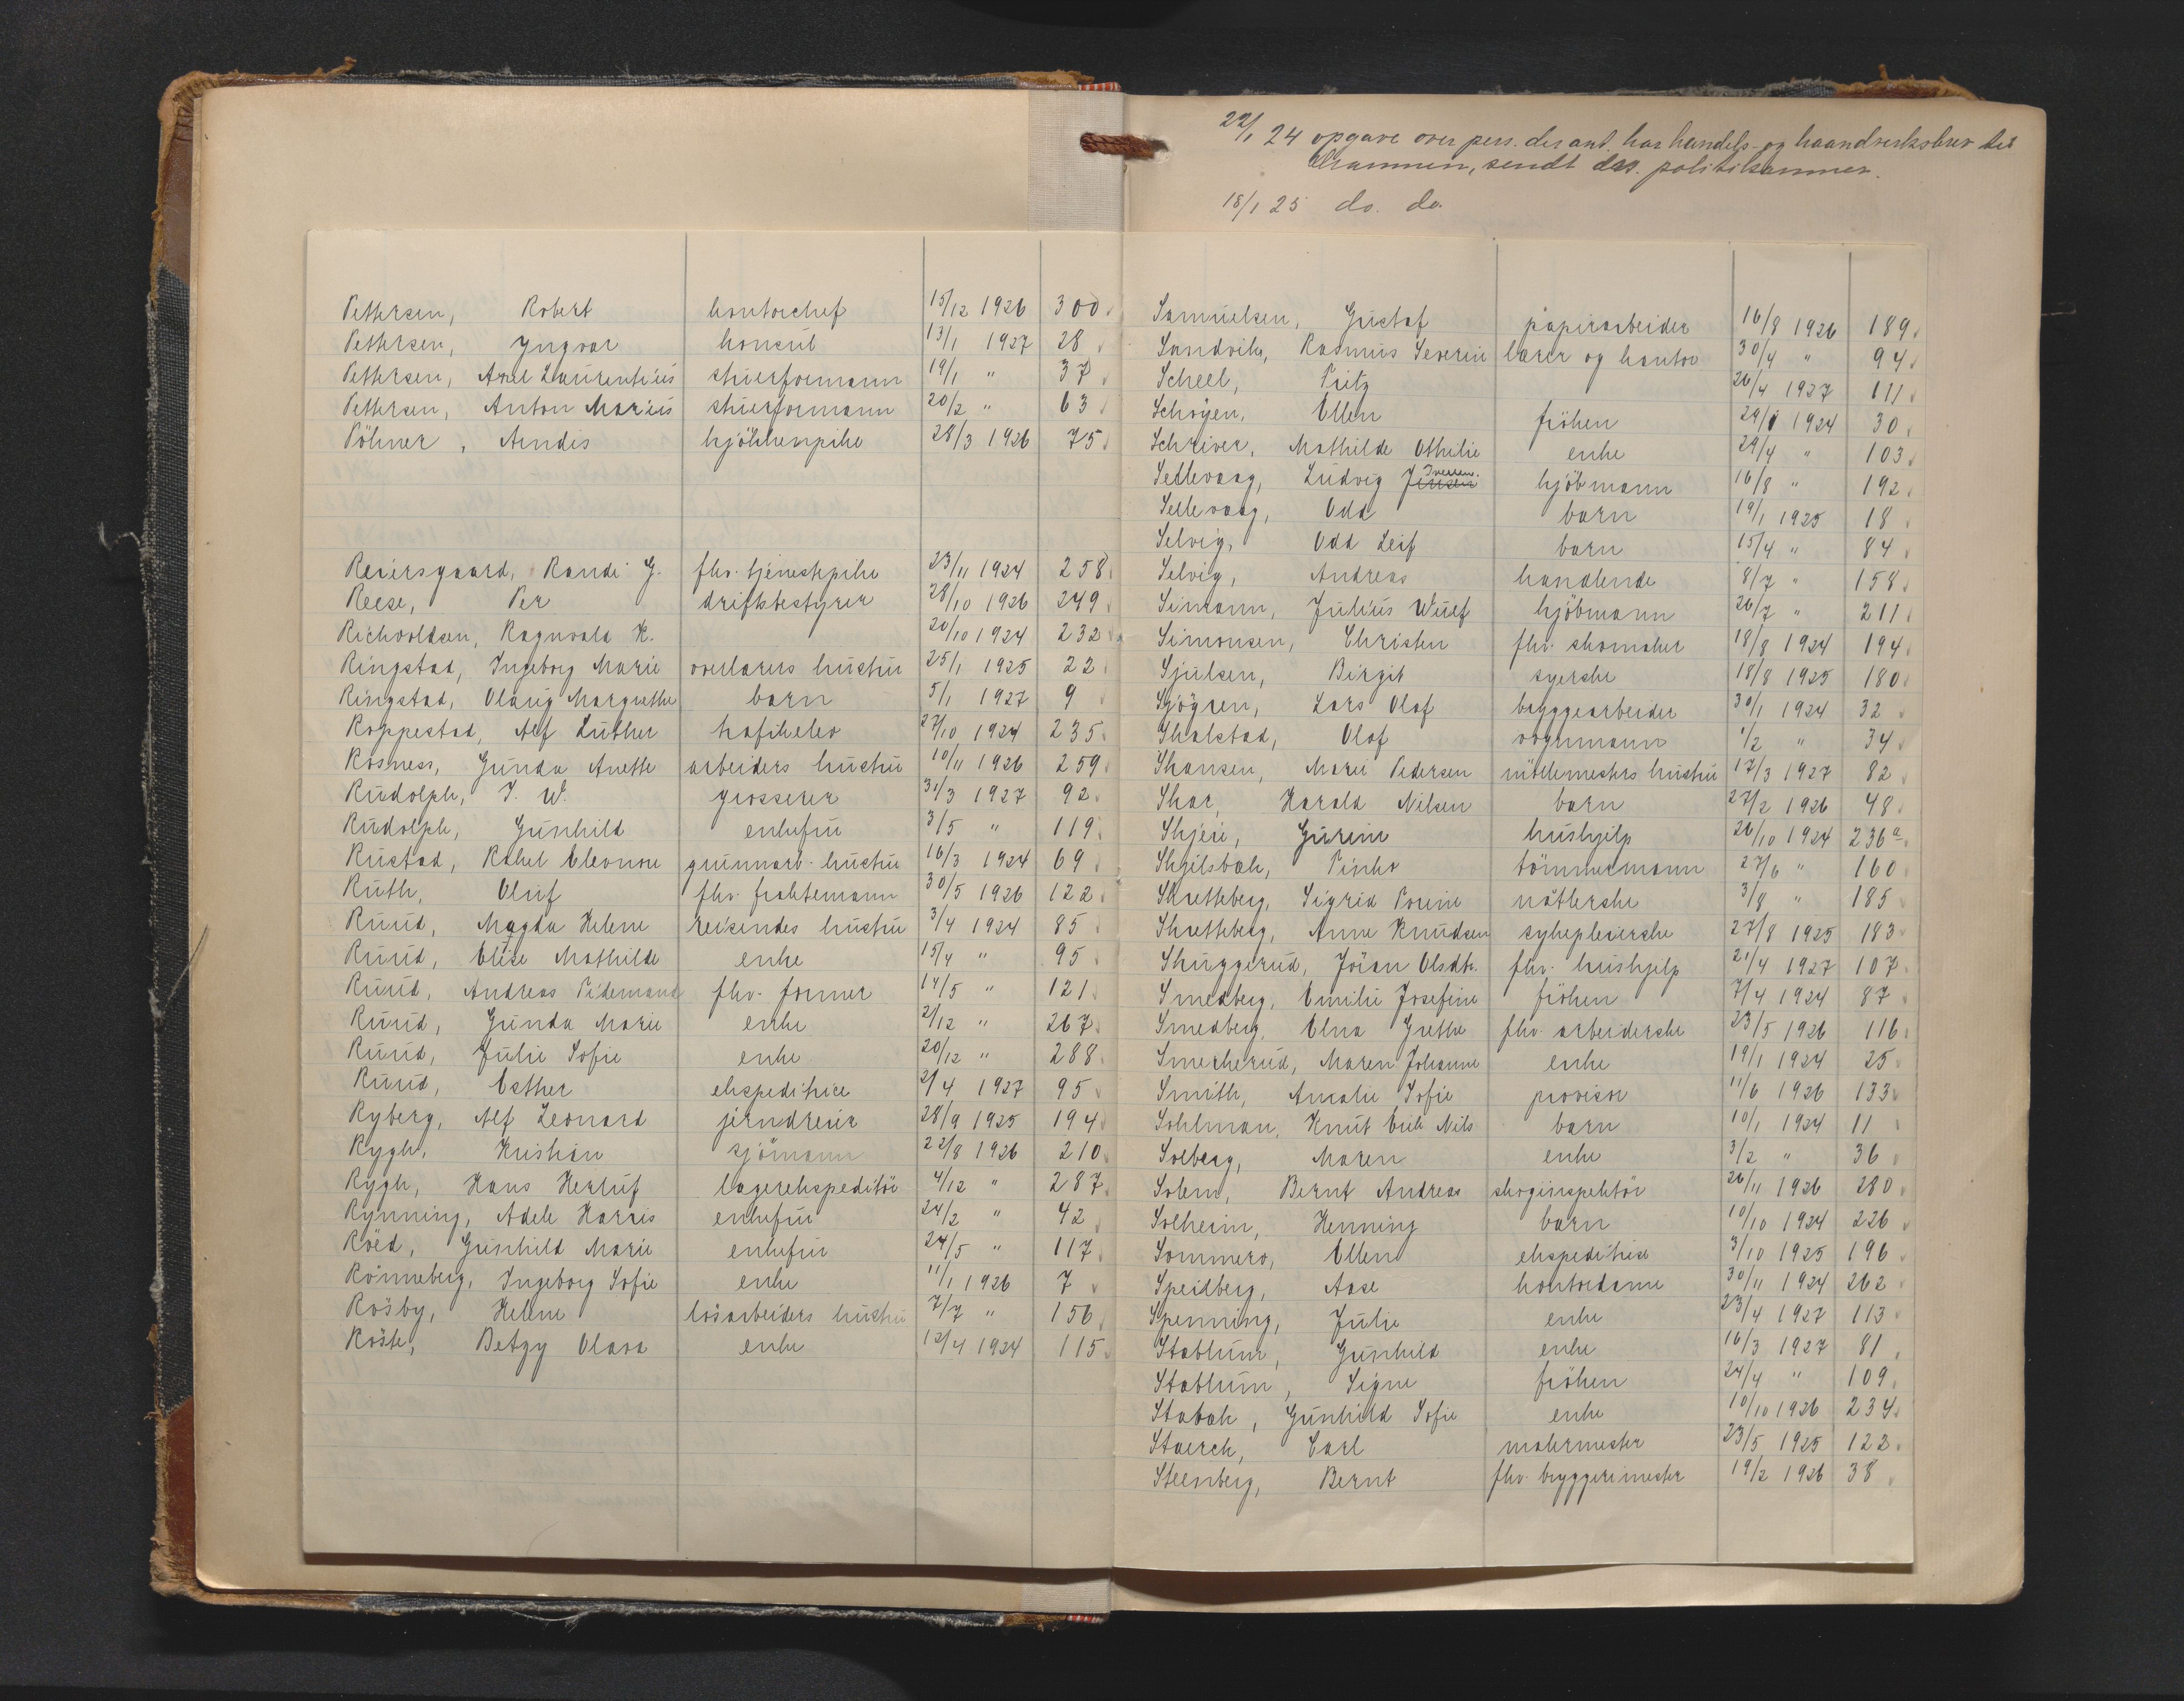 Pettersen, Robert kontorchef 15/12 1926 300
Pettersen, Yngvar konsul 13/1 1927 28
Pettersen, Axel Laurentius stuerformann 19/1 " 37
Pettersen, Anton Marius stuerformann 20/2 " 63
Pöhner, Arndis kjökkenpike 28/3 1926 75
Reiersgaard, Randi G. fhv. tjenestepike 23/11 1924 258
Reese, Per driftsbestyrer 28/10 1926 249
Richvoldsen, Ragnvald K. 20/10 1924 232
Ringstad, Ingeborg Marie overlærers hustru 25/1 1925 22
Ringstad, Olaug Margrethe barn 5/1 1927 9
Roppestad, Alf Luther kafékelev 27/10 1924 235
Rosness, Gunda Anette arbeiders hustru 10/11 1926 259
Rudolph, I. W. grosserer 31/3 1927 92
Rudolph, Gunhild enkefru 3/5 " 119
Rustad, Rakel Eleonore grunnarb. hustru 16/3 1924 69
Ruth, Oluf fhv. fraktemann 30/5 1926 122
Ruud, Magda Helene reisendes hustru 3/4 1924 85
Ruud, Elise Mathilde enke 15/4 " 95
Ruud, Andreas Tidemand fhv. former 14/5 " 121
Ruud, Gunda Marie enke 2/12 " 267
Ruud, Julie Sofie enke 20/12 " 288
Ruud, Esther ekspeditrice 2/4 1927 95
Ryberg, Alf Leonard jerndreier 28/9 1925 194
Rygh, Kristian sjömann 22/8 1926 210
Rygh, Hans Herluf lagerekspeditör 4/12 " 287
Rynning, Adele Harris enkefru 24/2 " 42
Röed, Gunhild Marie enkefru 24/5 " 117
Rönneberg, Ingeborg Sofie enke 11/1 1926 7
Rösby, Helene lösarbeiders hustru 7/7 " 156
Röste, Betzy Olava enke 12/4 1924 115
22/1 24 opgave over pers. der ant. har handels- og haandverksbrev til
Drammen, sendt drs. politikammer.
18/1 25 do. do.
Samuelsen, Gustaf papirarbeider 16/8 1926 189
Sandvik, Rasmus Severin lærer og kantor 30/4 " 94
Scheel, Fritz 26/4 1927 111
Schöyen, Ellen fröken 29/1 1924 30
Schriver, Mathilde Othilie enke 29/4 " 103
Sellevaag, Ludvig Jensen Iversen. kjöbmann 16/8 " 192
Sellevaag, Odd barn 19/1 1925 18
Selvig, Odd Leif barn 15/4 " 84
Selvig, Andreas handlende 8/7 " 158
Simann, Julius Wulf kjöbmann 26/7 " 211
Simonsen, Christen fhv. skomaker 18/8 1924 194
Sjulsen, Birgit syerske 18/8 1925 180
Sjögren, Lars Olof bryggearbeider 30/1 1924 32
Skalstad, Olof vognmann 1/2 " 34
Skansen, Marie Pedersen nöttemesters hustru 17/3 1927 82
Skar, Harald Nilsen barn 27/2 1926 48
Skjeie, Gurine hushjelp 26/10 1924 236a
Skjelsbæk, Peder tömmermann 27/6 " 160
Skretteberg, Sigrid Torine nötterske 3/8 " 185
Skretteberg, Anne Knudsen sykepleierske 27/8 1925 183
Skuggerud, Jöran Olsdtr. fhv. hushjelp 21/4 1927 107
Smedberg, Emilie Josefine fröken 7/4 1924 87
Smedberg, Elna Grethe fhv. arbeiderske 23/5 1926 116
Smerkerud, Maren Johanne enke 19/1 1924 25
Smith, Amalie Sofie provisor 11/6 1926 133
Sohlman, Knut Erik Nils barn 10/1 1924 11
Solberg, Maren enke 3/2 " 36
Solem, Bernt Andreas skoginspektör 26/11 1926 280
Solheim, Henning barn 10/10 1924 226
Sommero, Ellen ekspeditrice 3/10 1925 196
Speidberg, Aase kontordame 30/11 1924 262
Spenning, Julie enke 23/4 1927 113
Stablum, Gunhild enke 16/3 1927 81
Stablum, Signe fröken 24/4 " 109
Stabæk, Gunhild Sofie enke 10/10 1926 234
Staerck, Carl malermester 23/5 1925 122
Steenberg, Bernt fhv. bryggerimester 19/2 1926 38